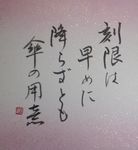 刻限は
早めに
降らずとも
傘の用意